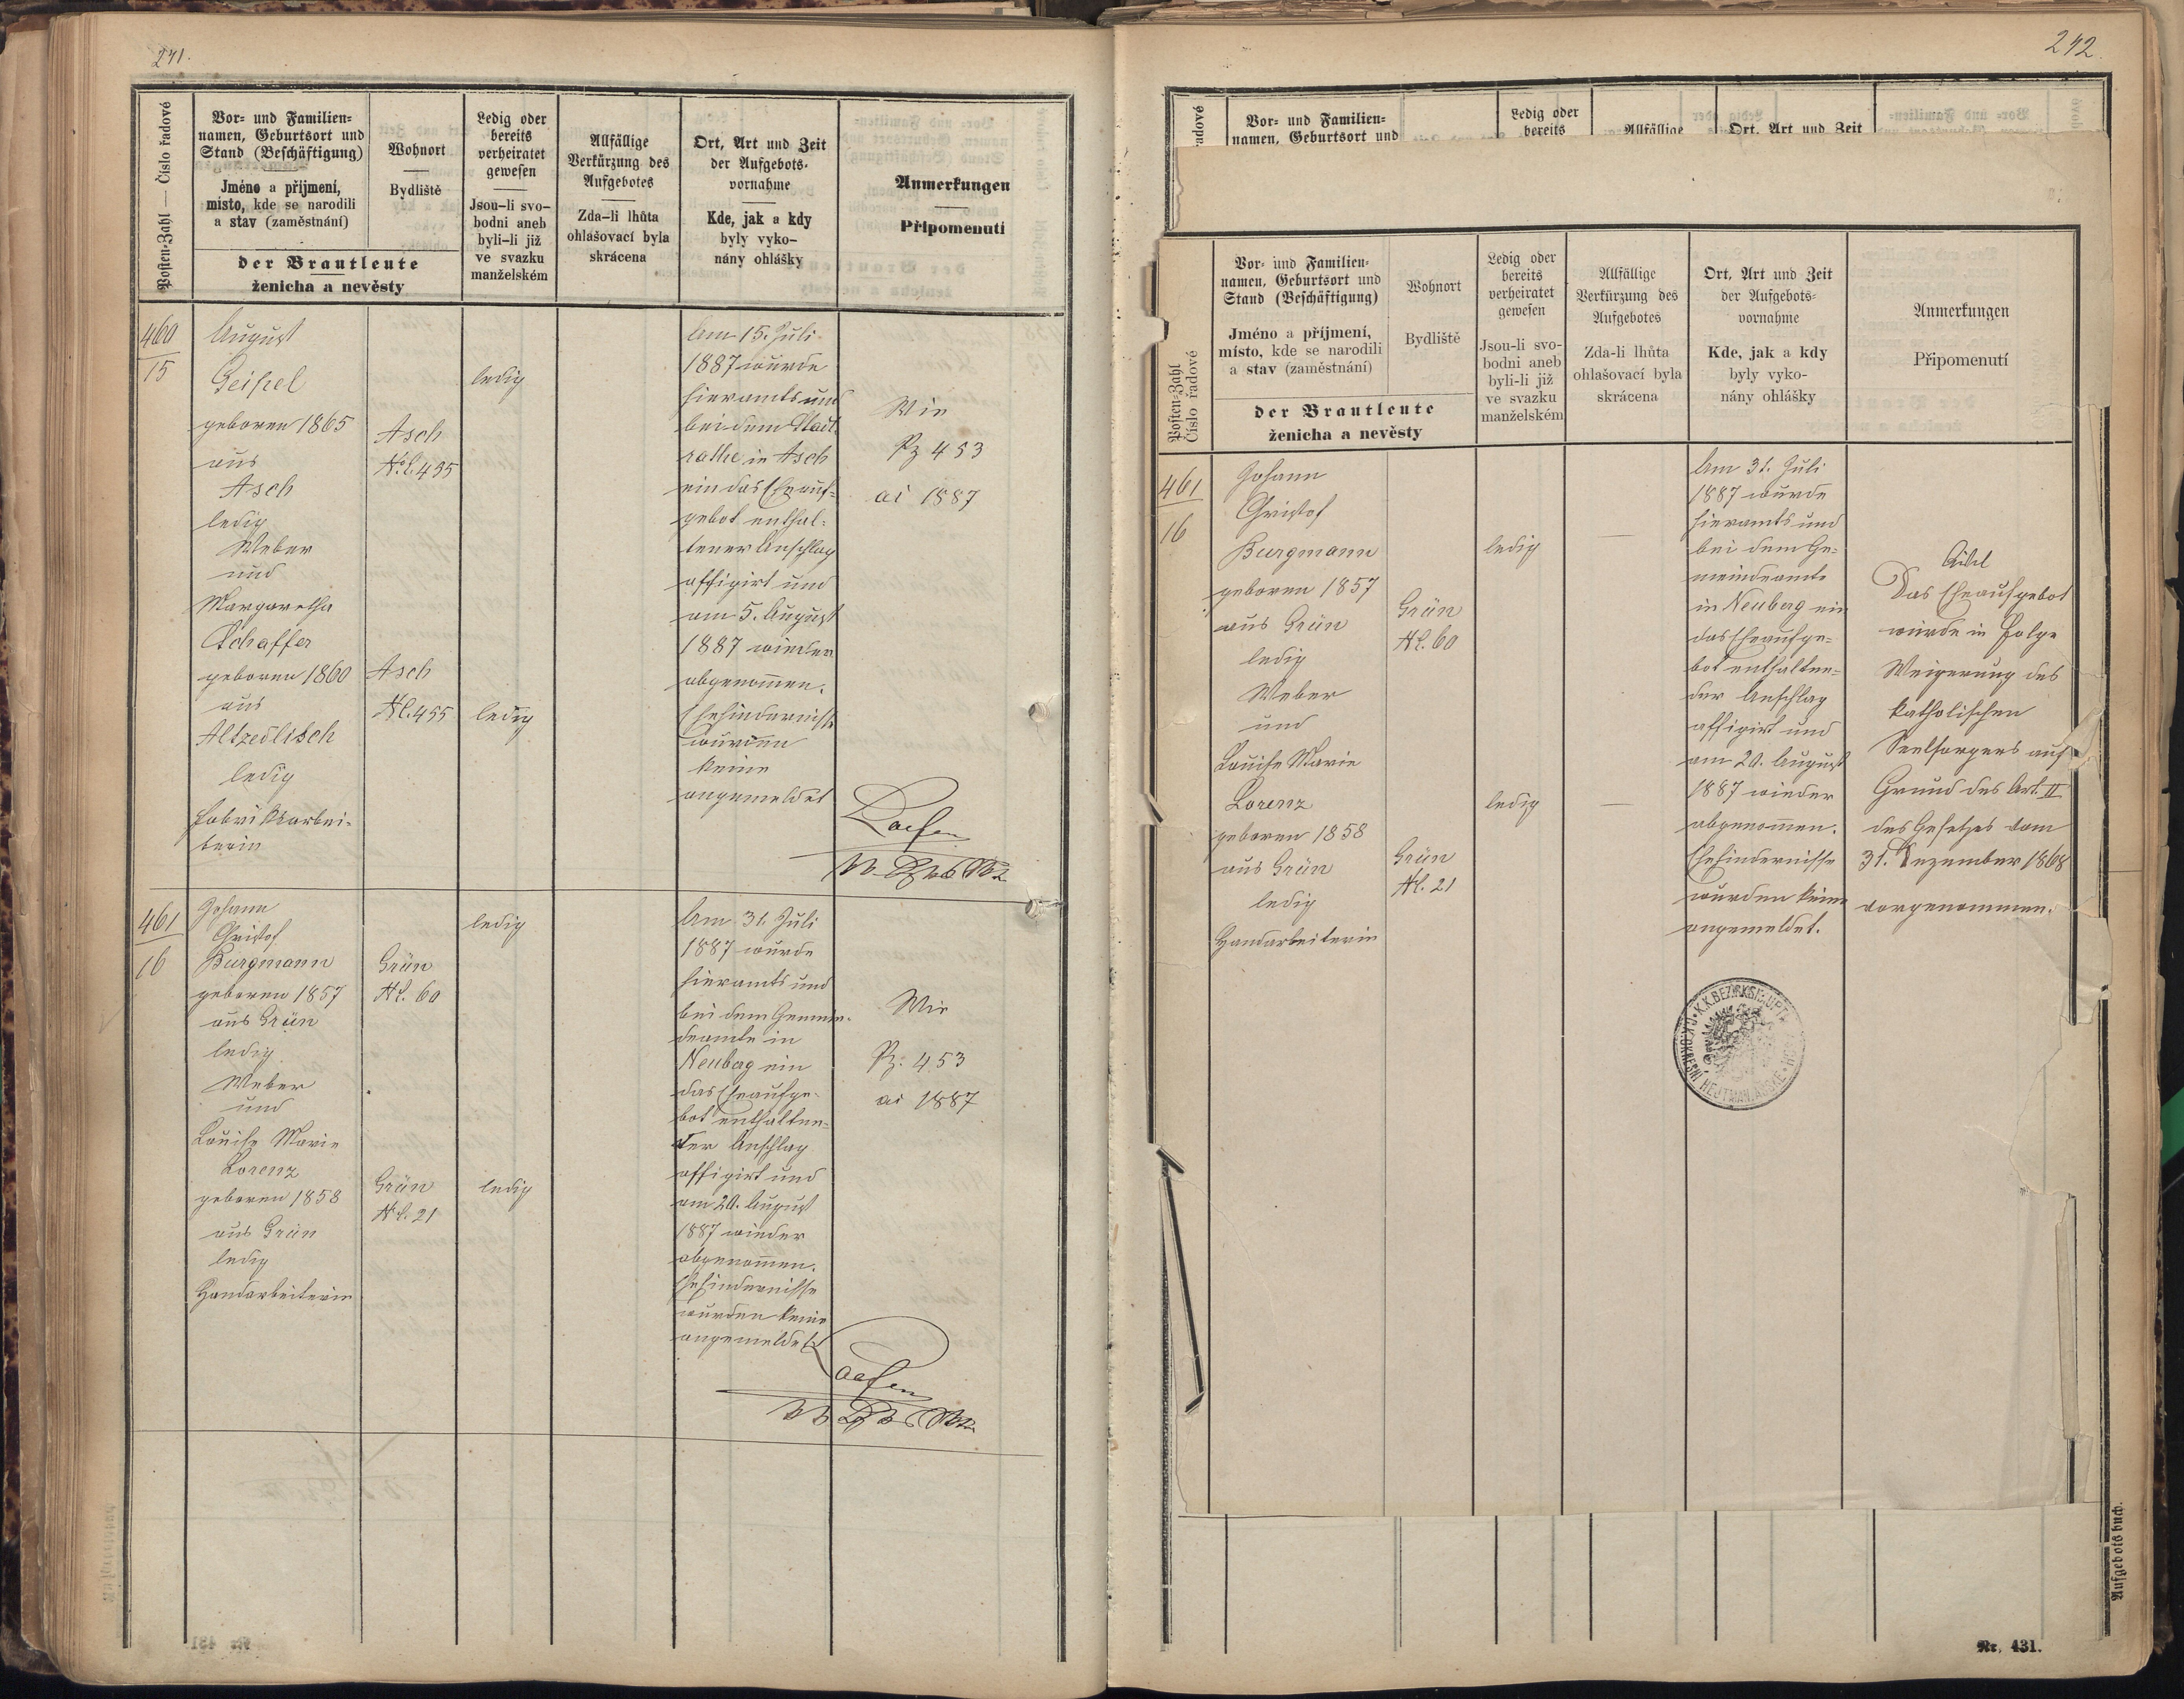 241.
Posten-Zahl — Číslo řadové
Vor- und Familien-
namen, Geburtsort und
Stand (Beschäftigung)
Jméno a příjmení,
místo, kde se narodili
a stav (zaměstnání)
Wohnort
Bydliště
der Brautleute
ženicha a nevěsty
Ledig oder
bereits
verheiratet
gewesen
Jsou-li svo-
bodni aneb
byli-li již
ve svazku
manželském
Allfällige
Verkürzung des
Aufgebotes
Zda-li lhůta
ohlašovací byla
skrácena
Ort, Art und Zeit
der Aufgebots-
vornahme
Kde, jak a kdy
byly vyko-
nány ohlášky
Anmerkungen
Připomenutí
460
15
August
Geipel
geboren 1865
aus
Asch
ledig
Weber
und
Margaretha
Schaffer
geboren 1860
aus
Altzedlisch
ledig
Fabrikarbei-
terin
Asch
N.C. 435
Asch
N.C. 455
ledig
ledig
Am 15. Juli
1887 wurde
hieramts und
bei dem Stadt
rathe in Asch
ein das Eheauf-
gebot enthal-
tener Anschlag
affigirt und
am 5. August
1887 wieder
abgenom̄en.
Ehehindernisse
wurden
keine
angemeldet
Wie
Pz 453
ai 1887
461
16
Johann
Christof
Burgmann
geboren 1857
aus Grün
ledig
Weber
und
Louise Marie
Lorenz
geboren 1858
aus Grün
ledig
Handarbeiterin
Grün
N.C. 60
Grün
N.C. 21
ledig
ledig
Am 31. Juli
1887 wurde
hieramts und
bei dem Gemein-
deamte in
Neuberg ein
das Eheaufge-
bot enthalten-
der Anschlag
affigirt und
am 20. August
1887 wieder
abgenom̄en.
Ehehindernisse
wurden keine
angemeldet
Wie
Pz: 453
ai 1887
242
řadové
Vor- und Familien-
namen, Geburtsort und
Ledig oder
bereits
Allfällige
Ort, Art und Zeit
Posten-Zahl
Číslo řadové
Vor- und Familien-
namen, Geburtsort und
Stand (Beschäftigung)
Jméno a příjmení,
místo, kde se narodili
a stav (zaměstnání)
Wohnort
Bydliště
der Brautleute
ženicha a nevěsty
Ledig oder
bereits
verheiratet
gewesen
Jsou-li svo-
bodni aneb
byli-li již
ve svazku
manželském
Allfällige
Verkürzung des
Aufgebotes
Zda-li lhůta
ohlašovací byla
skrácena
Ort, Art und Zeit
der Aufgebots-
vornahme
Kde, jak a kdy
byly vyko-
nány ohlášky
Anmerkungen
Připomenutí
461
16
Johann
Christof
Burgmann
geboren 1857
aus Grün
ledig
Weber
und
Louise Marie
Lorenz
geboren 1858
aus Grün
ledig
Handarbeiterin
Grün
N.C. 60
Grün
N.C. 21
ledig
—
ledig
—
Am 31. Juli
1887 wurde
hieramts und
bei dem Ge-
meindeamte
in Neuberg ein
das Eheaufge-
bot enthalten-
der Anschlag
affigirt und
am 20. August
1887 wieder
abgenom̄en.
Ehehindernisse
wurden keine
angemeldet.
Civil
Das Eheaufgebot
wurde in Folge
Weigerung des
katholischen
Seelsorgers auf
Grund des Art. II
des Gesetzes vom
31. Dezember 1868
vorgenommen.
Aufgebotsbuch.
Nr. 431.